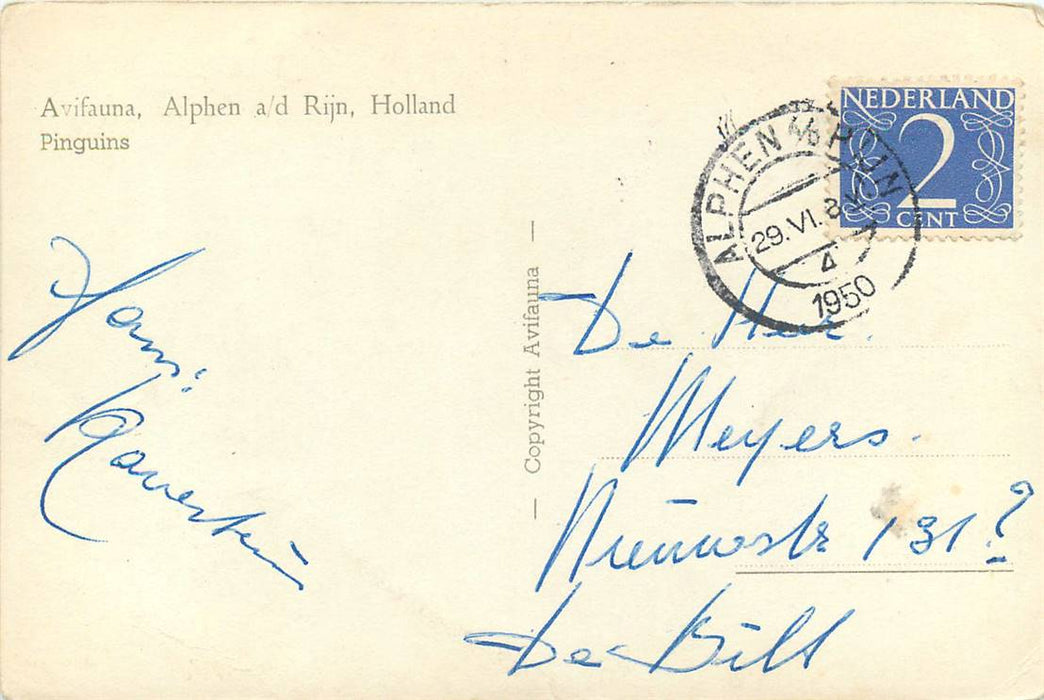 Avifauna, Alphen a/d Rijn, Holland
Pinguins
NEDERLAND
2
CENT
ALPHEN A/D RIJN
29.VI. 8
4
1950
— Copyright Avifauna —
De Heer.
Meyers.
Nieuwstr 131?
De Bilt
Fam:
Ravestein